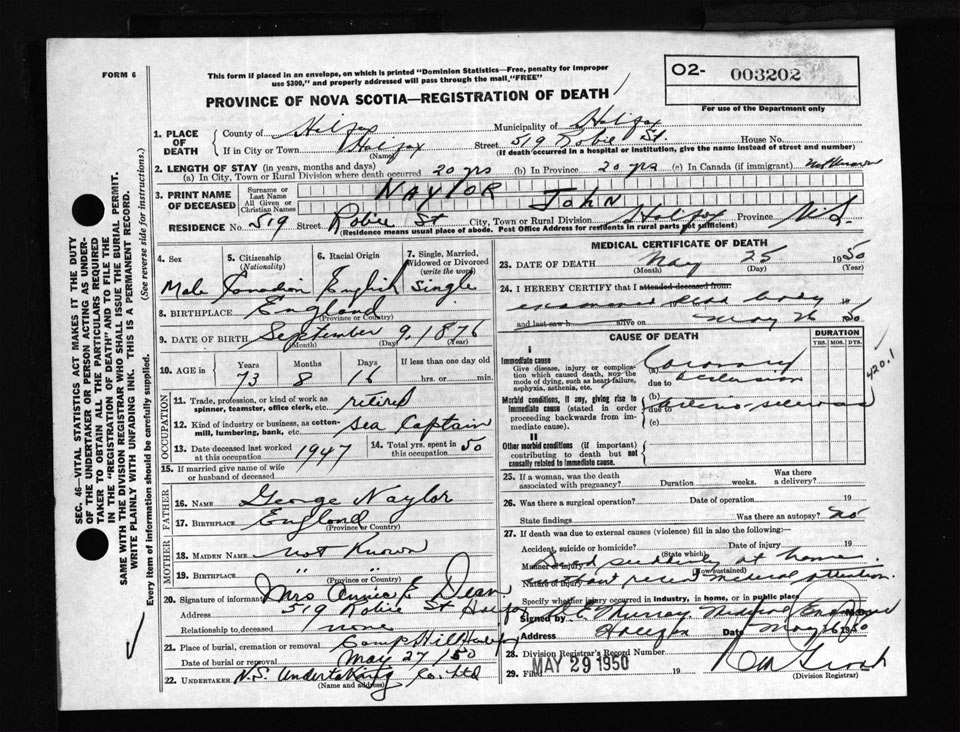 FORM 6
This form if placed in an envelope, on which is printed "Dominion Statistics—Free, penalty for improper
use $300," and properly addressed will pass through the mail, "FREE"
PROVINCE OF NOVA SCOTIA—REGISTRATION OF DEATH
02- 003202
For use of the Department only
SEC. 46—VITAL STATISTICS ACT MAKES IT THE DUTY
OF THE UNDERTAKER OR PERSON ACTING AS UNDER-
TAKER TO OBTAIN ALL THE PARTICULARS REQUIRED
IN THE "REGISTRATION OF DEATH" AND TO FILE THE
SAME WITH THE DIVISION REGISTRAR WHO SHALL ISSUE THE BURIAL PERMIT.
WRITE PLAINLY WITH UNFADING INK. THIS IS A PERMANENT RECORD.
Every item of information should be carefully supplied. (See reverse side for instructions.)
1. PLACE OF DEATH County of Halifax Municipality of Halifax
If in City or Town Halifax (Name) Street 519 Robie St. House No.
(If death occurred in a hospital or institution, give the name instead of street and number)
2. LENGTH OF STAY (in years, months and days)
(a) In City, Town or Rural Division where death occurred 20 yrs (b) In Province 20 yrs (c) In Canada (if immigrant) not known
3. PRINT NAME OF DECEASED Surname or Last Name NAYLOR
All Given or Christian Names JOHN
RESIDENCE No. 519 Street Robie St City, Town or Rural Division Halifax Province N.S.
(Residence means usual place of abode. Post Office Address for residents in rural parts not sufficient)
4. Sex Male
5. Citizenship (Nationality) Canadian
6. Racial Origin English
7. Single, Married, Widowed or Divorced (write the word) Single
8. BIRTHPLACE England (Province or Country)
9. DATE OF BIRTH September 9, 1876 (Month) (Day) (Year)
10. AGE in Years 73 Months 8 Days 16 If less than one day old hrs. or min.
OCCUPATION
11. Trade, profession, or kind of work as spinner, teamster, office clerk, etc. retired
12. Kind of industry or business, as cotton-mill, lumbering, bank, etc. Sea Captain
13. Date deceased last worked at this occupation 1947
14. Total yrs. spent in this occupation 50
15. If married give name of wife or husband of deceased
FATHER
16. NAME George Naylor
17. BIRTHPLACE England (Province or Country)
MOTHER
18. MAIDEN NAME not known
19. BIRTHPLACE " " (Province or Country)
20. Signature of informant Mrs Annie E Dean
Address 519 Robie St Halifax
Relationship to deceased none
21. Place of burial, cremation or removal Camp Hill Halifax
Date of burial or removal May 27/50
22. UNDERTAKER N.S. Undertaking Co. Ltd
(Name and address)
MEDICAL CERTIFICATE OF DEATH
23. DATE OF DEATH May 25 1950
(Month) (Day) (Year)
24. I HEREBY CERTIFY that I attended deceased from:
examined dead body 19
and last saw h alive on May 26 1950
CAUSE OF DEATH DURATION
YRS. MOS. DYS.
I
Immediate cause
Give disease, injury or complication which caused death, not the mode of dying, such as heart failure, asphyxia, asthenia, etc.
(a) Coronary
due to occlusion
420.1
Morbid conditions, if any, giving rise to immediate cause (stated in order proceeding backwards from immediate cause).
(b)
due to arterio-sclerosis
(c)
II
Other morbid conditions (if important) contributing to death but not causally related to immediate cause.
25. If a woman, was the death associated with pregnancy? Duration weeks. Was there a delivery?
26. Was there a surgical operation? Date of operation 19
State findings Was there an autopsy? no
27. If death was due to external causes (violence) fill in also the following:—
Accident, suicide or homicide? (State which) Date of injury 19
Manner of injury Died suddenly at home (How sustained)
Nature of injury without recent medical attention.
Specify whether injury occurred in industry, in home, or in public place
Signed by D.E. Murray, Medical Examiner
Address Halifax Date May 26 1950
28. Division Registrar's Record Number
29. Filed MAY 29 1950 19
(Division Registrar)